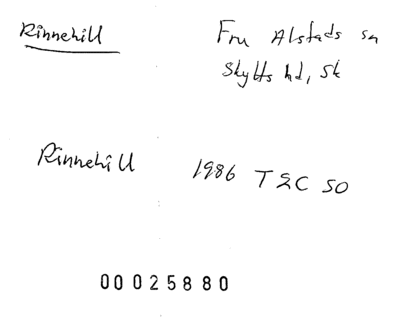 Rinnehill
Fru Alstads sn
Skytts hd, Sk
Rinnehill 1986 T2C 50
00025880